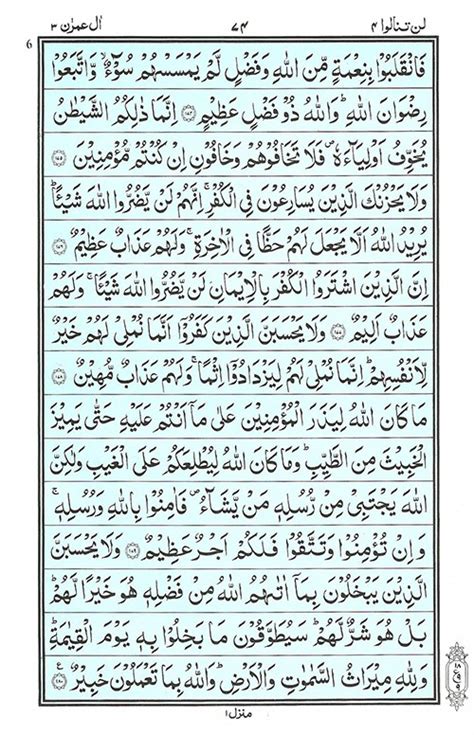 لن تنالوا ۴ ۷۴ اٰل عمرٰن ۳
6
فَانْقَلَبُوْا بِنِعْمَةٍ مِّنَ اللّٰهِ وَفَضْلٍ لَّمْ يَمْسَسْهُمْ سُوْٓءٌ ۙ وَّاتَّبَعُوْا
رِضْوَانَ اللّٰهِ ؕ وَاللّٰهُ ذُوْ فَضْلٍ عَظِيْمٍ ۝ اِنَّمَا ذٰلِكُمُ الشَّيْطٰنُ
يُخَوِّفُ اَوْلِيَآءَهٗ ۪ فَلَا تَخَافُوْهُمْ وَخَافُوْنِ اِنْ كُنْتُمْ مُّؤْمِنِيْنَ ۝
وَلَا يَحْزُنْكَ الَّذِيْنَ يُسَارِعُوْنَ فِى الْكُفْرِ ۚ اِنَّهُمْ لَنْ يَّضُرُّوا اللّٰهَ شَيْـًٔا ؕ
يُرِيْدُ اللّٰهُ اَلَّا يَجْعَلَ لَهُمْ حَظًّا فِى الْاٰخِرَةِ ۚ وَلَهُمْ عَذَابٌ عَظِيْمٌ ۝
اِنَّ الَّذِيْنَ اشْتَرَوُا الْكُفْرَ بِالْاِيْمَانِ لَنْ يَّضُرُّوا اللّٰهَ شَيْـًٔا ۚ وَلَهُمْ
عَذَابٌ اَلِيْمٌ ۝ وَلَا يَحْسَبَنَّ الَّذِيْنَ كَفَرُوْٓا اَنَّمَا نُمْلِىْ لَهُمْ خَيْرٌ
لِّاَنْفُسِهِمْ ؕ اِنَّمَا نُمْلِىْ لَهُمْ لِيَزْدَادُوْٓا اِثْمًا ۚ وَلَهُمْ عَذَابٌ مُّهِيْنٌ ۝
مَا كَانَ اللّٰهُ لِيَذَرَ الْمُؤْمِنِيْنَ عَلٰى مَآ اَنْتُمْ عَلَيْهِ حَتّٰى يَمِيْزَ
الْخَبِيْثَ مِنَ الطَّيِّبِ ؕ وَمَا كَانَ اللّٰهُ لِيُطْلِعَكُمْ عَلَى الْغَيْبِ وَلٰكِنَّ
اللّٰهَ يَجْتَبِىْ مِنْ رُّسُلِهٖ مَنْ يَّشَآءُ ۪ فَاٰمِنُوْا بِاللّٰهِ وَرُسُلِهٖ ۚ
وَاِنْ تُؤْمِنُوْا وَتَتَّقُوْا فَلَكُمْ اَجْرٌ عَظِيْمٌ ۝ وَلَا يَحْسَبَنَّ
الَّذِيْنَ يَبْخَلُوْنَ بِمَآ اٰتٰىهُمُ اللّٰهُ مِنْ فَضْلِهٖ هُوَ خَيْرًا لَّهُمْ ؕ
بَلْ هُوَ شَرٌّ لَّهُمْ ؕ سَيُطَوَّقُوْنَ مَا بَخِلُوْا بِهٖ يَوْمَ الْقِيٰمَةِ ؕ
وَلِلّٰهِ مِيْرَاثُ السَّمٰوٰتِ وَالْاَرْضِ ؕ وَاللّٰهُ بِمَا تَعْمَلُوْنَ خَبِيْرٌ ۝
منزل ۱